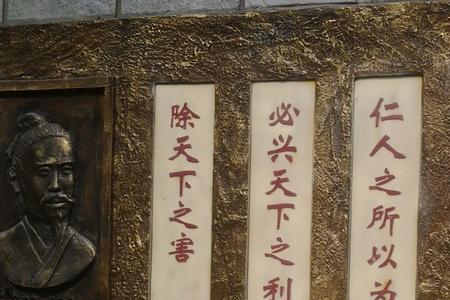 仁人之所以为
必兴天下之利
除天下之害